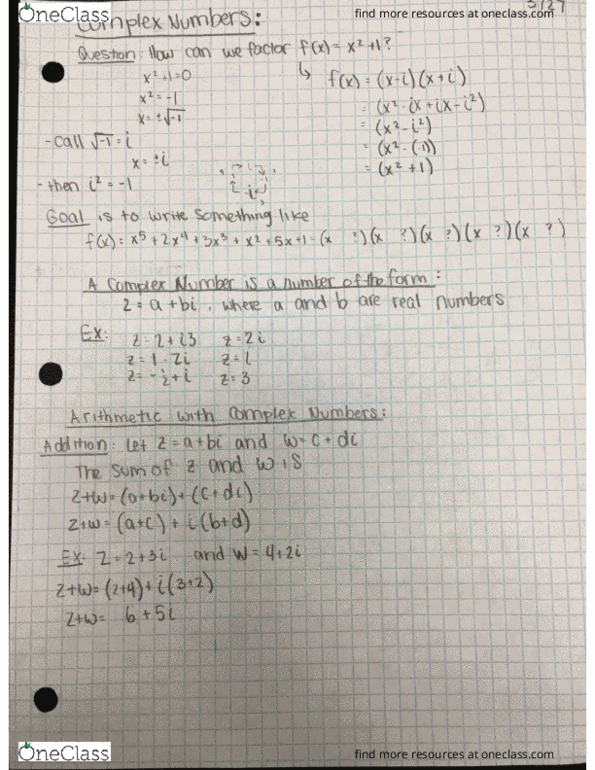 OneClass
find more resources at oneclass.com
3/27
Complex Numbers:
Question: How can we factor f(x) = x²+1?
x²+1=0
x²=-1
x=±√-1
-call √-1=i
x=±i
-then i²=-1
↳ f(x)=(x-i)(x+i)
=(x²-ix+ix-i²)
=(x²-i²)
=(x²-(-1))
=(x²+1)
Goal is to write something like
f(x)=x⁵+2x⁴+3x³+x²+5x+1=(x ?)(x ?)(x ?)(x ?)(x ?)
A Complex Number is a number of the form:
z=a+bi, where a and b are real numbers
Ex: z=2+i3 z=2i
z=1-2i z=i
z=-½+i z=3
Arithmetic with Complex Numbers:
Addition: Let z=a+bi and w=c+di
The sum of z and w is
z+w=(a+bi)+(c+di)
z+w=(a+c)+i(b+d)
Ex: z=2+3i and w=4+2i
z+w=(2+4)+i(3+2)
z+w= 6+5i
OneClass
find more resources at oneclass.com